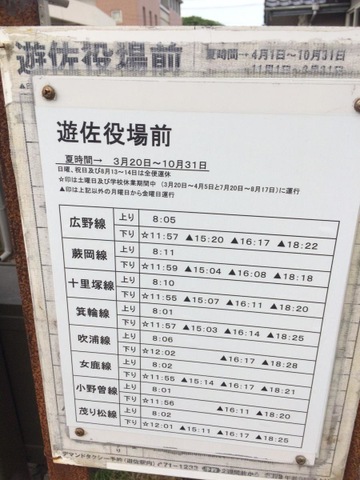 遊佐役場前
夏時間→ 4月1日～10月31日
遊佐役場前
夏時間→ 3月20日～10月31日
日曜、祝日及び8月13～14日は全便運休
☆印は土曜日及び学校休業期間中 (3月20日～4月5日と7月20日～8月17日)に運行
▲印は上記以外の月曜日から金曜日運行
広野線 上り 8:05
下り ☆11:57 ▲15:20 ▲16:17 ▲18:22
蕨岡線 上り 8:11
下り ☆11:59 ▲15:04 ▲16:08 ▲18:18
十里塚線 上り 8:10
下り ☆11:55 ▲15:07 ▲16:11 ▲18:20
箕輪線 上り 8:01
下り ☆11:57 ▲15:03 ▲16:14 ▲18:25
吹浦線 上り 8:06
下り ☆12:02 ▲16:17 ▲18:28
女鹿線 上り 8:02
下り ☆11:55 ▲15:14 ▲16:17 ▲18:21
小野曽線 上り 8:01
下り ☆11:56 ▲16:11 ▲18:20
茂り松線 上り 8:02
下り ☆12:01 ▲15:11 ▲16:17 ▲18:25